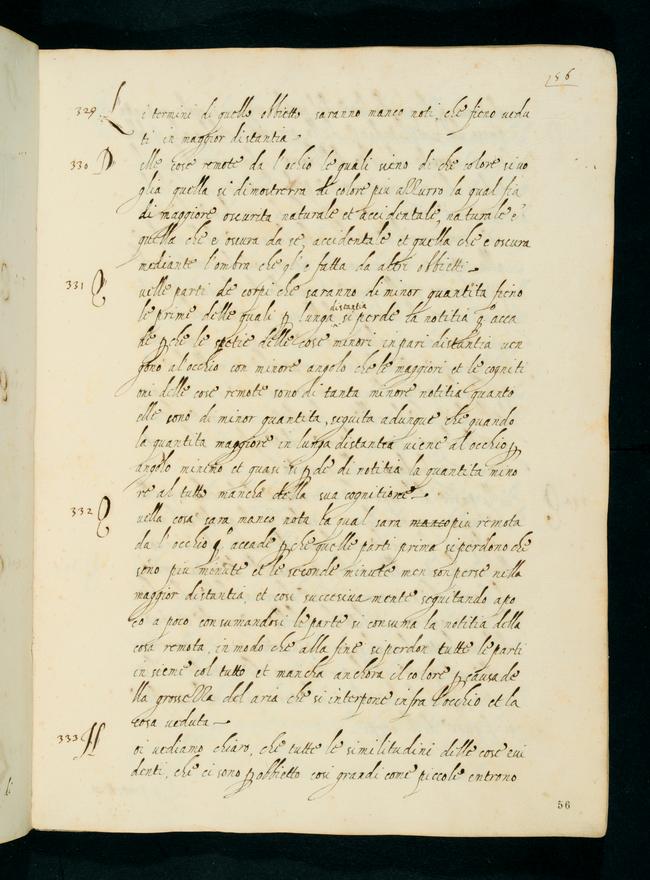 156
329 Li termini di quello obbietto saranno manco noti, che fieno vedu
ti in maggior distantia
330 Delle cose remote da l'ochio le quali sieno di che colore si vo
glia quella si dimosterra di colore piu allurro la qual fia
di maggiore oscurita naturale et accidentale, naturale e
quella che e oscura da se, accidentale et quella che e oscura
mediante l'ombra che gl'e fatta da altri obbietti
331 Quelle parti de corpi che saranno di minor quantita fieno
distantia
le prime delle quali p lunga si perde la notitia q acca
de p che le spetie delle cose minori in pari distantia ven
gono al occhio con minore angolo che le maggiori et le cogniti
oni delle cose remote sono di tanta minore notitia quanto
elle sono di minor quantita, seguita adunque che quando
la quantita maggiore in lunga distantia viene al occhio p
angolo minimo et quasi si pde di notitia la quantita mino
re al tutto mancha della sua cognitione
332 Quella cosa sara manco nota la qual sara manco piu remota
da l'occhio qo accade p che quelle parti prima si perdono che
sono piu minute et le seconde minute men son perse nella
maggior distantia, et cosi succesiva mente seguitando apo
co a poco consumandosi le parte si consuma la notitia della
cosa remota, in modo che alla fine si perdon tutte le parti
insieme col tutto et mancha anchora il colore p causa de
lla grossella del aria che si interpone infra l'occhio et la
cosa veduta
333 Noi vediamo chiaro, che tutte le similitudini delle cose evi
denti, che ci sono p obbietto cosi grandi come piccole entrono
56